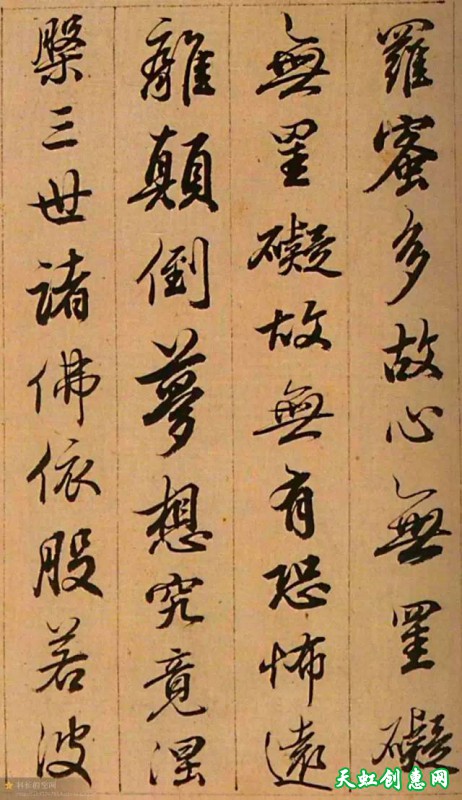 羅蜜多故心無罣礙
無罣礙故無有恐怖遠
離顛倒夢想究竟涅
槃三世諸佛依股若波
天虹创惠网